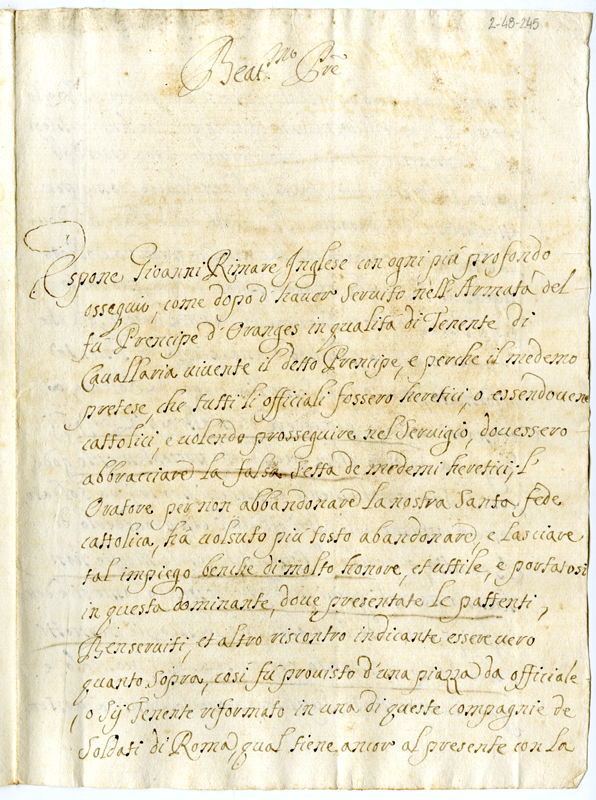 2-48-245
Beat.mo Pre
Espone Gioanni Rimare Inglese con ogni più profondo
ossequio, come dopo d'hauer Seruito nell'Armata del
fù Prencipe d'Oranges in qualità di Tenente di
Cauallaria uiuente il detto Prencipe, e perche il medemo
pretese, che tutti li officiali fossero heretici, o essendouene
cattolici, e uolendo prosseguire nel Seruigio, douessero
abbracciare la falsa Setta de medemi heretici, l'
Oratore per non abbandonare la nostra Santa fede
cattolica, hà uolsuto più tosto abandonare, e lasciare
tal impiego benche di molto honore, et uttile, e portatosi
in questa dominante, doue presentate le pattenti,
Benseruiti, et altro riscontro indicante essere uero
quanto Sopra, così fù prouisto d'una piazza da officiale
o Sij Tenente riformato in una di queste compagnie de
Soldati di Roma, qual tiene ancor al presente con la